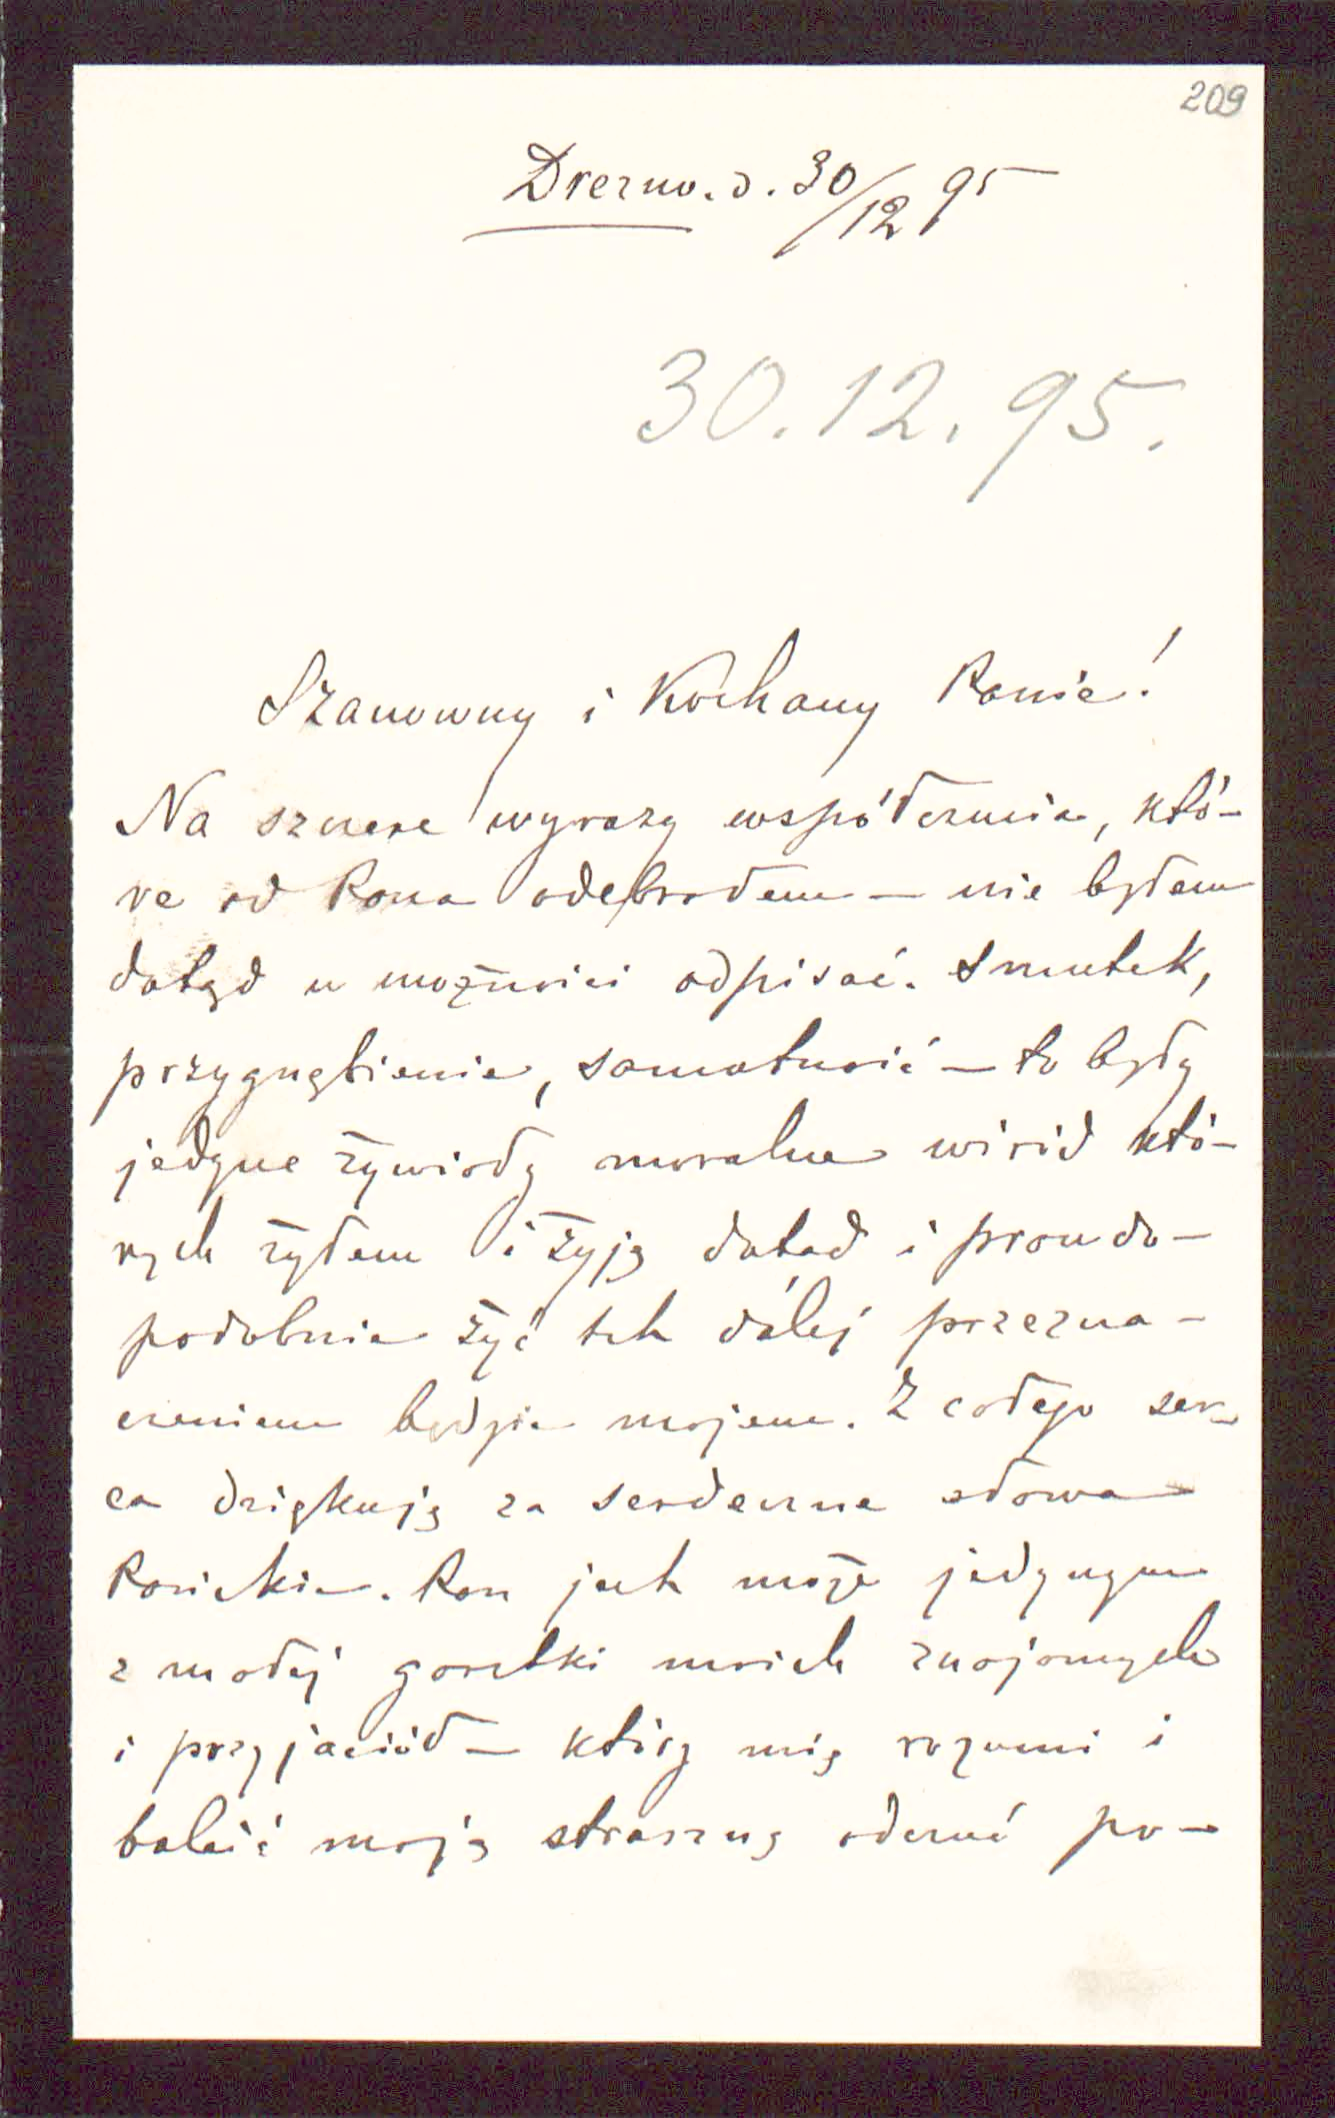 209
Drezno. d. 30/12 95
30.12.95.
Szanowny i Kochany Panie!
Na szczere wyrazy współczucia, któ-
re od Pana odebrałem — nie byłem
dotąd w możności odpisać. Smutek,
przygnębienie, samotność — to były
jedyne żywioły moralne wśród któ-
rych żyłem i żyję dotąd i prawdo-
podobnie żyć tak dalej przezna-
czeniem będzie mojem. Z całego ser-
ca dziękuję za serdeczne słowa
Pańskie. Pan jest może jedynym
z małej garstki moich znajomych
i przyjaciół — który mię rozumi i
boleść moją straszną odczuć po-